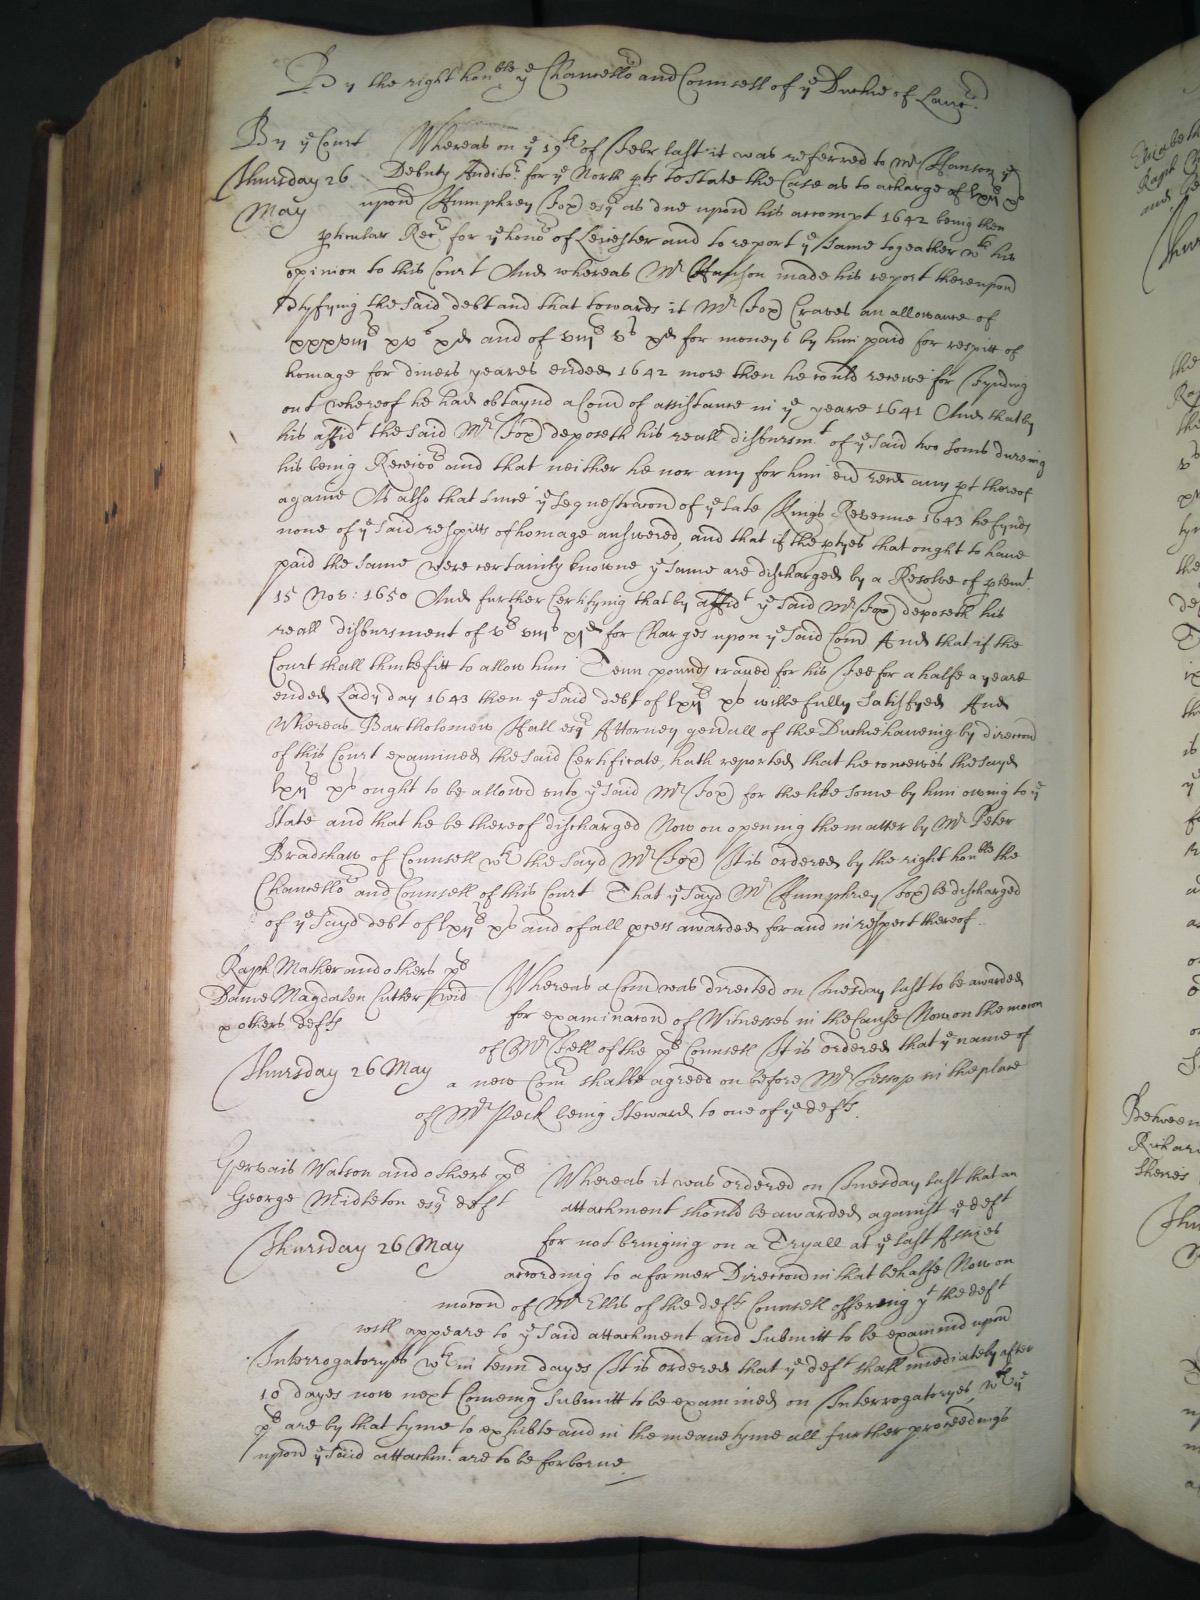 By the right hon:ble ye Chancellor and Counsell of ye Duchie of Lancr
By ye Court
Thursday 26
May
Whereas on ye 19th of Febr last it was referred to Mr Hanson ye
Deputy Auditor for ye North pts to State the Case as to a charge of lxijli xs
upon Humphrey Fox esqr as due upon his accompt 1642 being then
pticular Recr for ye honor of Leicester and to report ye same togeather wth his
opinion to this Court And whereas Mr Hanson made his report thereupon
the said debt and that towards it Mr Fox Craves an allowance of
xxxviijli xvs xd and of viijli vs xd for moneys by him paid for respitt of
homage for divers yeares ended 1642 more then he could receive for fynding
out whereof he had obtaynd a Com of assistance in ye yeare 1641 And that by
his affidt the said Mr Fox deposeth his reall disbursmt of ye said two somes dureing
his being Receivor and that neither he nor any for him did rece any pt thereof
againe As also that since ye sequestracon of ye late Kings Revenue 1643 he fynds
none of ye said respitts of homage answered, and that if the ptyes that ought to have
paid the same were certainly knowne ye same are discharged by a Resolve of plemt
15 Nov: 1650 And further Certifynig that by affidt ye said Mr Fox deposeth his
reall disbursment of vli viijs xjd for Charges upon ye said Com And that if the
Court shall thinke fitt to allow him Tenn pounds craved for his Fee for a halfe a yeare
ended Lady day 1643 then ye said debt of lxijli xs wilbe fully satisfyed And
Whereas Bartholomew Hall esqr Attorney genrall of the Duchie haveing by direccon
of this Court examined the said Certificate, hath reported that he conceives the sayd
lxijli xs ought to be allowd unto ye said Mr Fox for the like some by him owing to ye
State and that he be thereof discharged Now on opening the matter by Mr Peter
Bradshaw of Counsell wth the sayd Mr Fox It is ordered by the right honble the
Chancellor and Counsell of this Court That ye sayd Mr Humphrey Fox be discharged
of ye sayd debt of lxijli xs and of all pcess awarded for and in respect thereof
Raph Mather and others pls
Dame Magdalen Cutler wid
& others defts
Thursday 26 May
Whereas a Com was directed on Tuesday last to be awarded
for examinacon of Witnesses in the Cause Now on the mocon
of Mr Fell of the pls Counsell It is ordered that ye name of
a new Comr shalbe agreed on before Mr Jessop in the place
of Mr Peck being Steward to one of ye defts.
Gervais Watson and others pls
George Midleton esqr deft
Thursday 26 May
Whereas it was ordered on Tuesday last that an
attachment should be awarded against ye deft
for not bringnig on a Tryall at ye last Assizes
according to a former Direccon in that behalfe Now on
mocon of Mr Ellis of the defts Counsell offering yt the deft
will appeare to ye said attachment and submitt to be examind upon
Interrogatoryes wthin tenn dayes It is ordered that ye deft shall imediately after
10 dayes now next Comeing submitt to be examined on Interrogatoryes, wch ye
pls are by that tyme to exhibite and in the meane tyme all further proceedings
upon ye said attachmt are to be forborne